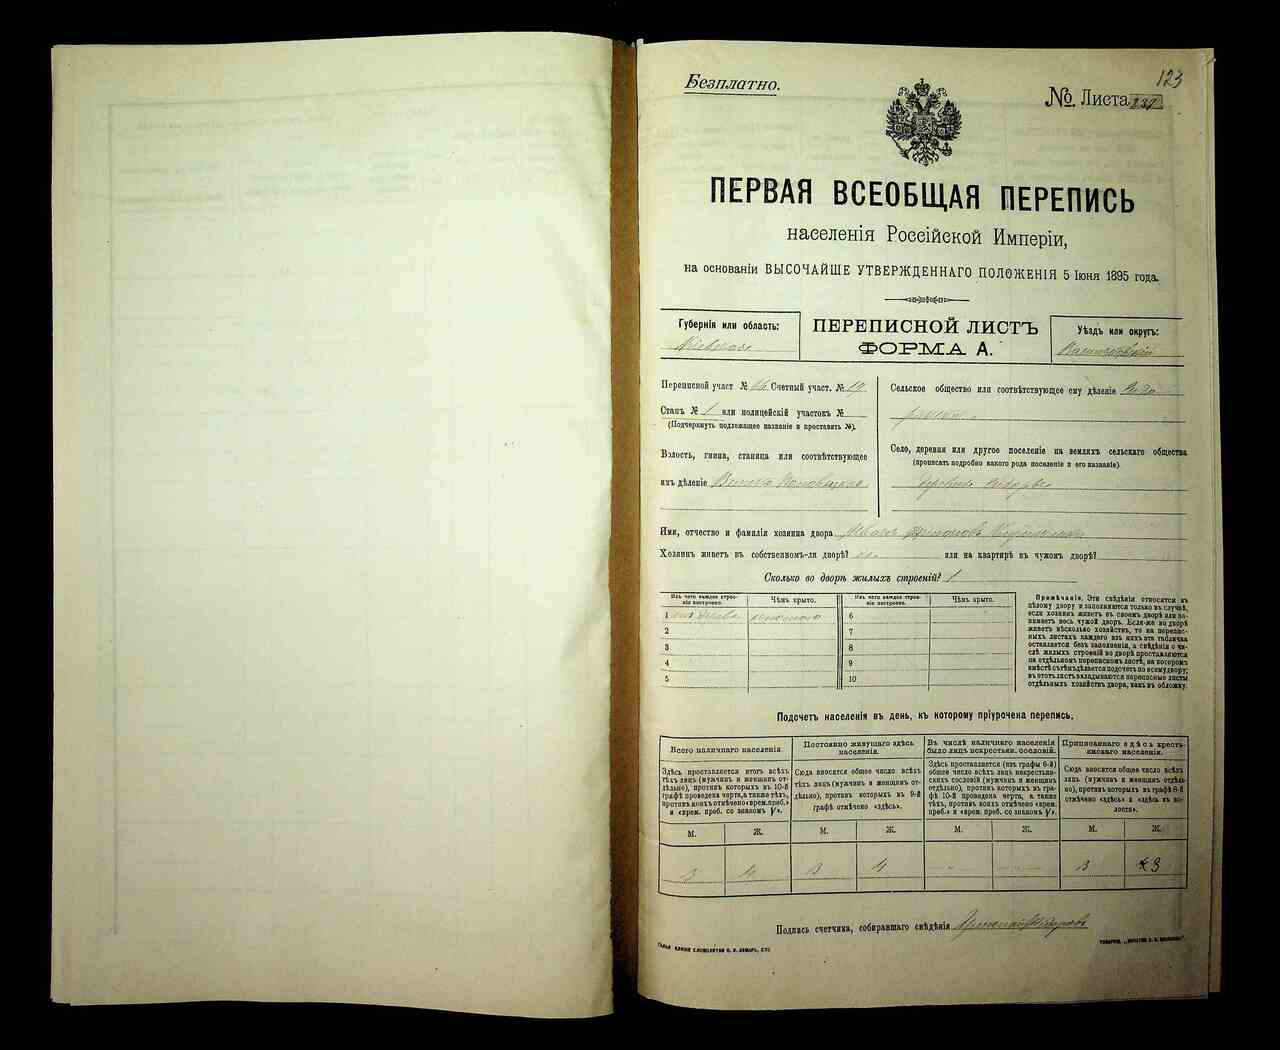 123
Безплатно.
№ Листа
ПЕРВАЯ ВСЕОБЩАЯ ПЕРЕПИСЬ
населенія Россійской Имперіи,
на основаніи ВЫСОЧАЙШЕ УТВЕРЖДЕННАГО ПОЛОЖЕНІЯ 5 Іюня 1895 года.
Губернія или область:
Кіевская
ПЕРЕПИСНОЙ ЛИСТЪ
ФОРМА А.
Уѣздъ или округъ:
Переписной участ. № 16 Счетный участ. № 19
Станъ № 1 или полицейскій участокъ №
(Подчеркнуть подлежащее названіе и проставить №).
Волость, гмина, станица или соотвѣтствующее
имъ дѣленіе
Сельское общество или соотвѣтствующее ему дѣленіе
Село, деревня или другое поселеніе на земляхъ сельскаго общества
(прописать подробно какого рода поселеніе и его названіе).
деревня
Имя, отчество и фамилія хозяина двора Иванъ
Хозяинъ живетъ въ собственномъ-ли дворѣ? или на квартирѣ въ чужом дворѣ?
Сколько во дворѣ жилыхъ строеній? 1
Изъ чего каждое строе-
ніе построено.
Чѣмъ крыто.
Изъ чего каждое строе-
ніе построено.
Чѣмъ крыто.
1 изъ дерева соломою
2
3
4
5
6
7
8
9
10
Примѣчаніе. Эти свѣдѣнія относятся къ
цѣлому двору и заполняются только въ случаѣ,
если хозяинъ живетъ въ своемъ дворѣ или за-
нимаетъ весь чужой дворъ. Если-же во дворѣ
живетъ нѣсколько хозяйствъ, то на перепис-
ныхъ листахъ каждаго изъ нихъ эта табличка
оставляется безъ заполненія, а свѣдѣнія о чи-
слѣ жилыхъ строеній во дворѣ проставляются
на отдѣльномъ переписномъ листѣ, на которомъ
вмѣстѣ съ тѣмъ дѣлается подсчетъ по всему двору;
въ этотъ листъ вкладываются переписные листы
отдѣльныхъ хозяйствъ двора, какъ въ обложку.
Подсчетъ населенія въ день, къ которому пріурочена перепись.
Всего наличнаго населенія.
Постоянно живущаго здѣсь
населенія.
Въ числѣ наличнаго населенія
было лицъ некрестьян. сословій.
Приписаннаго здѣсь кресть-
янскаго населенія.
Здѣсь проставляется итогъ всѣхъ
тѣхъ лицъ (мужчинъ и женщинъ от-
дѣльно), противъ которыхъ въ 10-й
графѣ проведена черта, а также тѣхъ,
противъ коихъ отмѣчено «врем. преб.»
и «врем. преб. со знакомъ V».
Сюда вносится общее число всѣхъ
тѣхъ лицъ (мужчинъ и женщинъ от-
дѣльно), противъ которыхъ въ 9-й
графѣ отмѣчено «здѣсь».
Здѣсь проставляется (изъ графы 6-й)
общее число всѣхъ лицъ некрестьян-
скихъ сословій (мужчинъ и женщинъ
отдѣльно), противъ которыхъ въ гра-
фѣ 10-й проведена черта, а также
тѣхъ, противъ коихъ отмѣчено «врем.
преб.» и «врем. преб. со знакомъ V».
Сюда вносится общее число всѣхъ
лицъ (мужчинъ и женщинъ отдѣль-
но), противъ которыхъ въ графѣ 8-й
отмѣчено «здѣсь» и «здѣсь въ во-
лости».
М. Ж. М. Ж. М. Ж. М. Ж.
3 4 3 4 – – 3 3
Подпись счетчика, собиравшаго свѣдѣнія